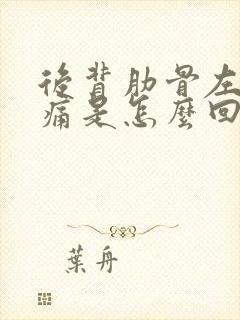 後背肋骨左
痛是怎麼回
葉舟